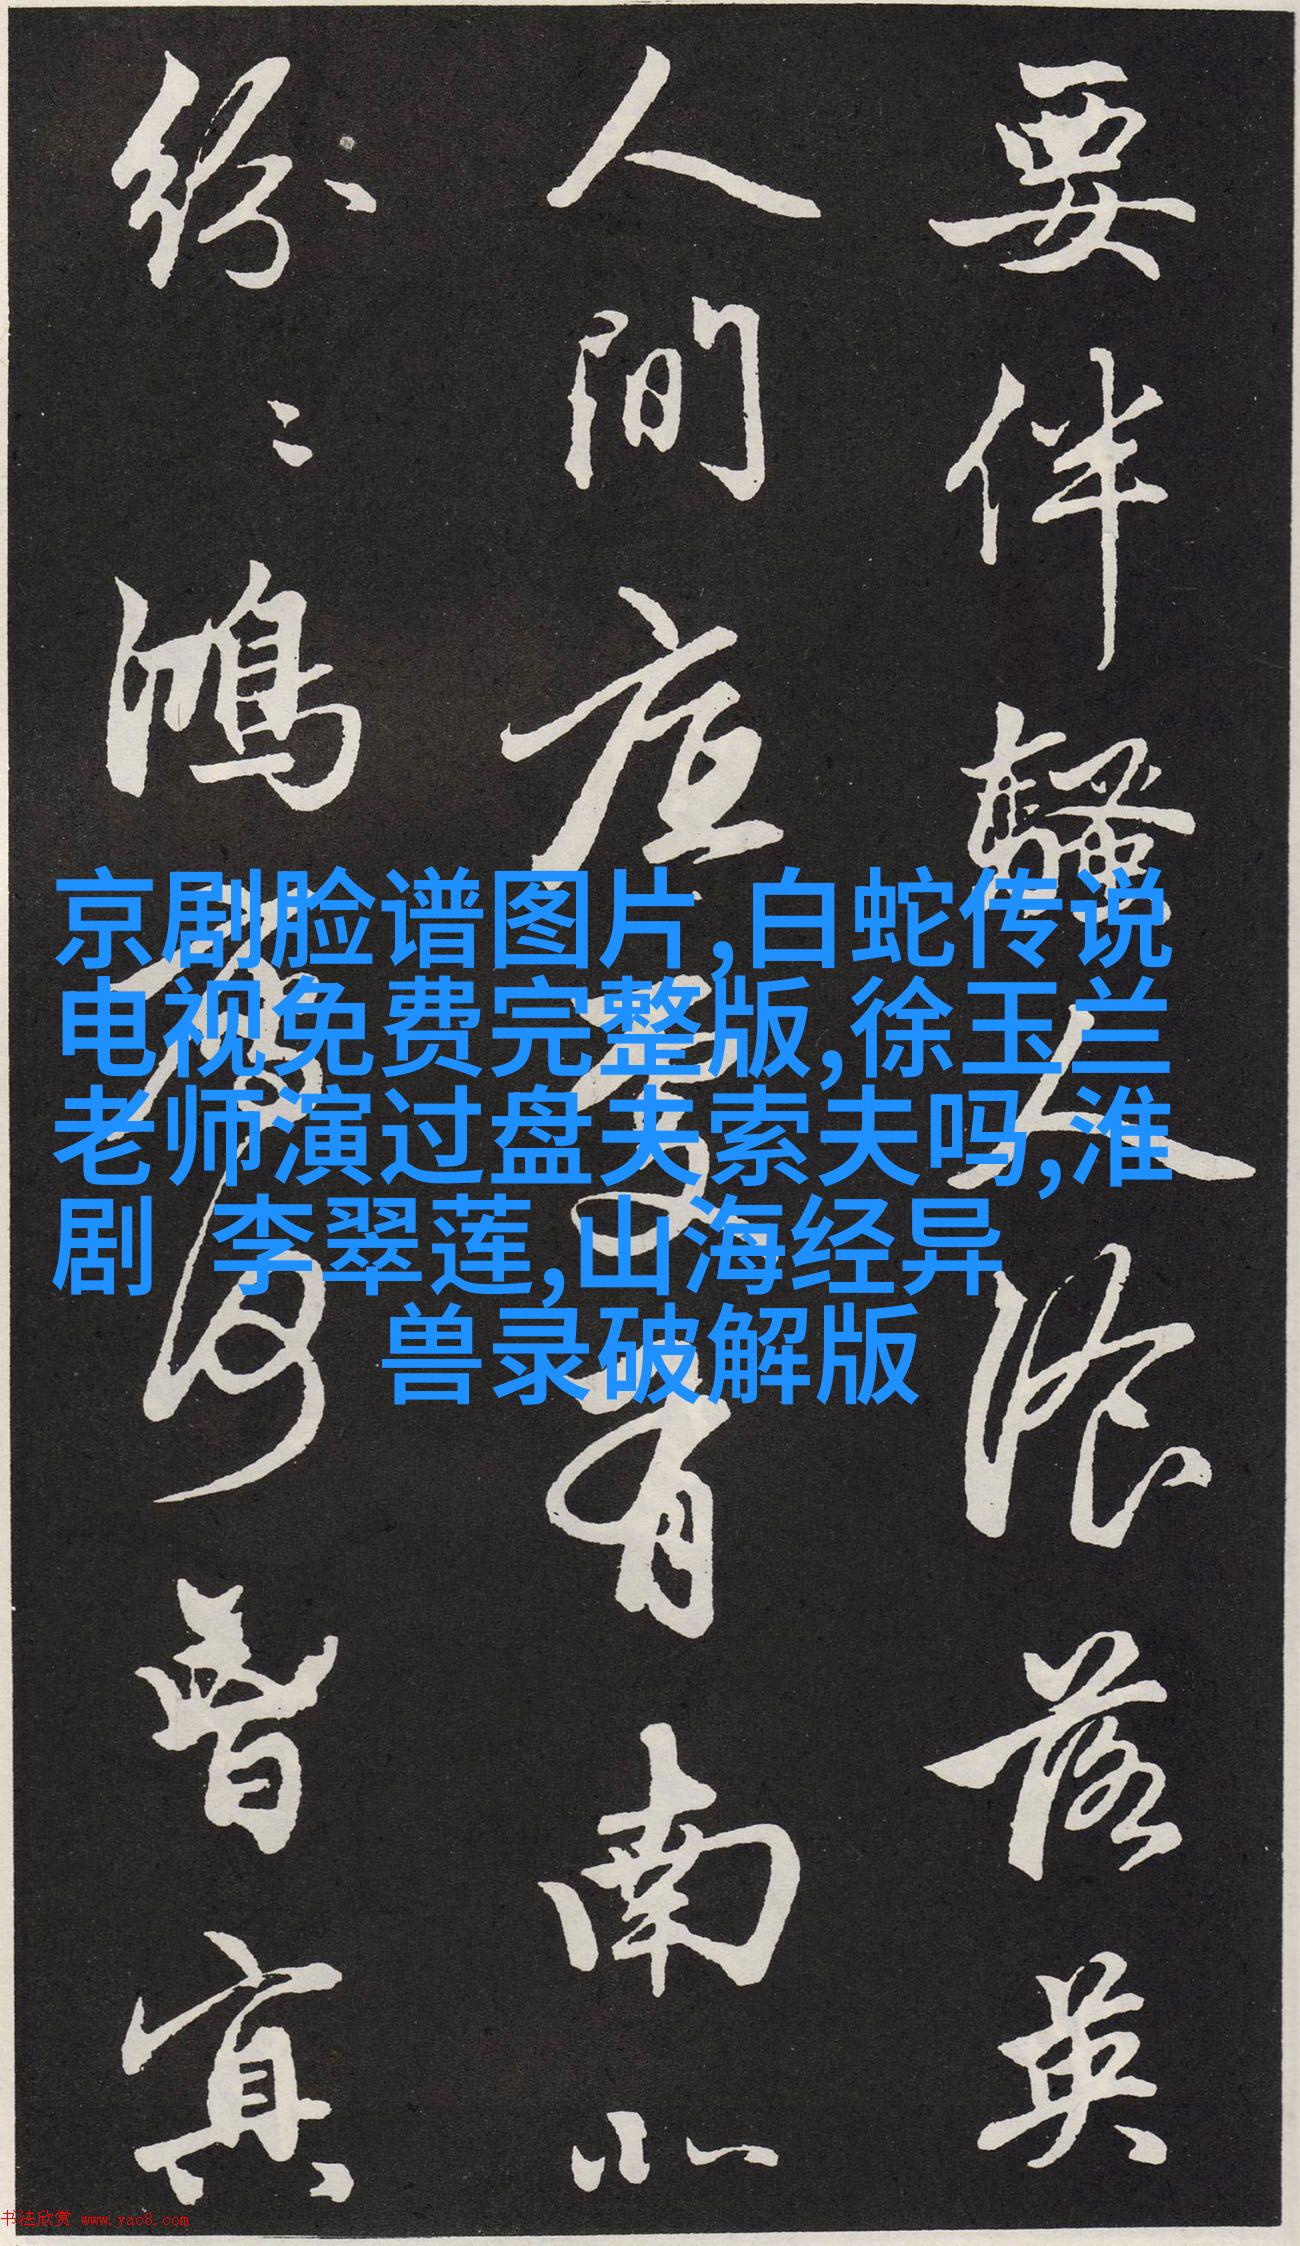 要伴騷人湌落英
人間底處有南北
紛〻鴻雁何曾冥
京剧脸谱图片,白蛇传说
电视免费完整版,徐玉兰
老师演过盘夫索夫吗,淮
剧 李翠莲,山海经异
兽录破解版
书法欣赏 www.yac8.com